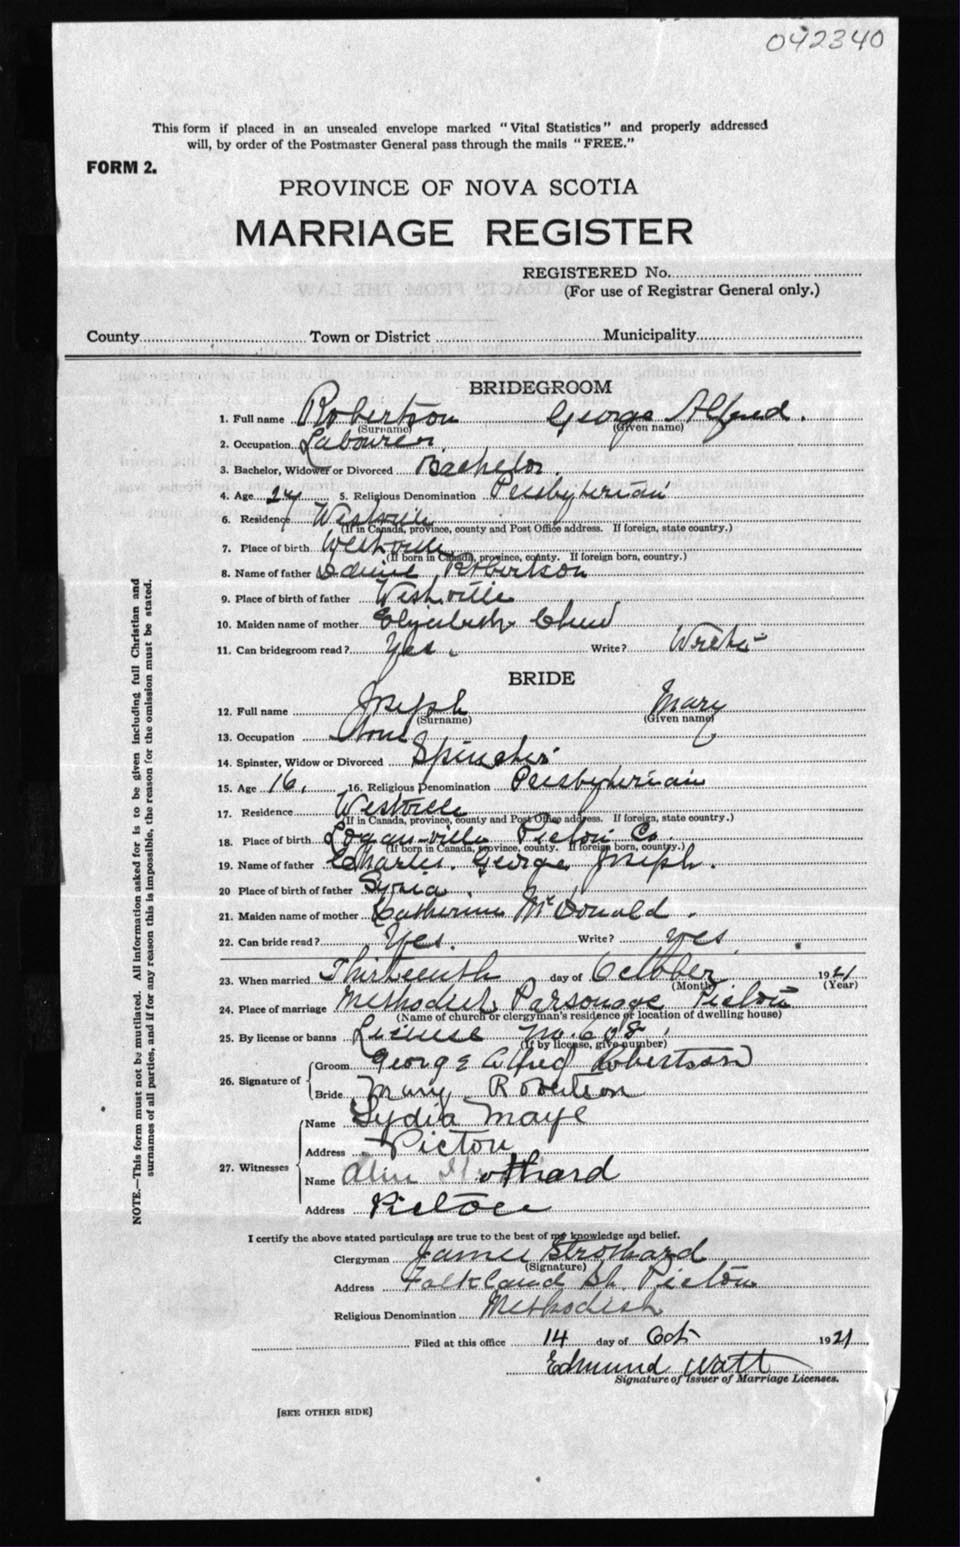 042340
This form if placed in an unsealed envelope marked "Vital Statistics" and properly addressed
will, by order of the Postmaster General pass through the mails "FREE."
FORM 2.
PROVINCE OF NOVA SCOTIA
MARRIAGE REGISTER
REGISTERED No.
(For use of Registrar General only.)
County Town or District Municipality
BRIDEGROOM
1. Full name Robertson George Alfred.
(Surname) (Given name)
2. Occupation Labourer
3. Bachelor, Widower or Divorced Bachelor.
4. Age 24 5. Religious Denomination Presbyterian
6. Residence Westville
(If in Canada, province, county and Post Office address. If foreign, state country.)
7. Place of birth Westville
(If born in Canada, province, county. If foreign born, country.)
8. Name of father Robertson
9. Place of birth of father Westville
10. Maiden name of mother Elizabeth
11. Can bridegroom read? Yes. Write? Write
BRIDE
12. Full name Joseph Mary
(Surname) (Given name)
13. Occupation None
14. Spinster, Widow or Divorced Spinster
15. Age 16. 16. Religious Denomination Presbyterian
17. Residence Westville
(If in Canada, province, county and Post Office address. If foreign, state country.)
18. Place of birth Loganville Pictou Co.
(If born in Canada, province, county. If foreign born, country.)
19. Name of father Charles George Joseph.
20 Place of birth of father Syria.
21. Maiden name of mother Catherine McDonald.
22. Can bride read? Yes. Write? yes
23. When married Thirteenth day of October 1921
(Month) (Year)
24. Place of marriage Methodist Parsonage Pictou
(Name of church or clergyman's residence or location of dwelling house)
25. By license or banns License No. 608
(If by license, give number)
26. Signature of Groom George Alfred Robertson
Bride Mary Robertson
27. Witnesses
Name Lydia Maye
Address Pictou
Name Strothard
Address Pictou
I certify the above stated particulars are true to the best of my knowledge and belief.
Clergyman James Strothard
(Signature)
Address Falkland St. Pictou
Religious Denomination Methodist
Filed at this office 14 day of Oct 1921
Edmund Watt
Signature of Issuer of Marriage Licenses.
[SEE OTHER SIDE]
NOTE.—This form must not be mutilated. All information asked for is to be given including full Christian and
surnames of all parties, and if for any reason this is impossible, the reason for the omission must be stated.